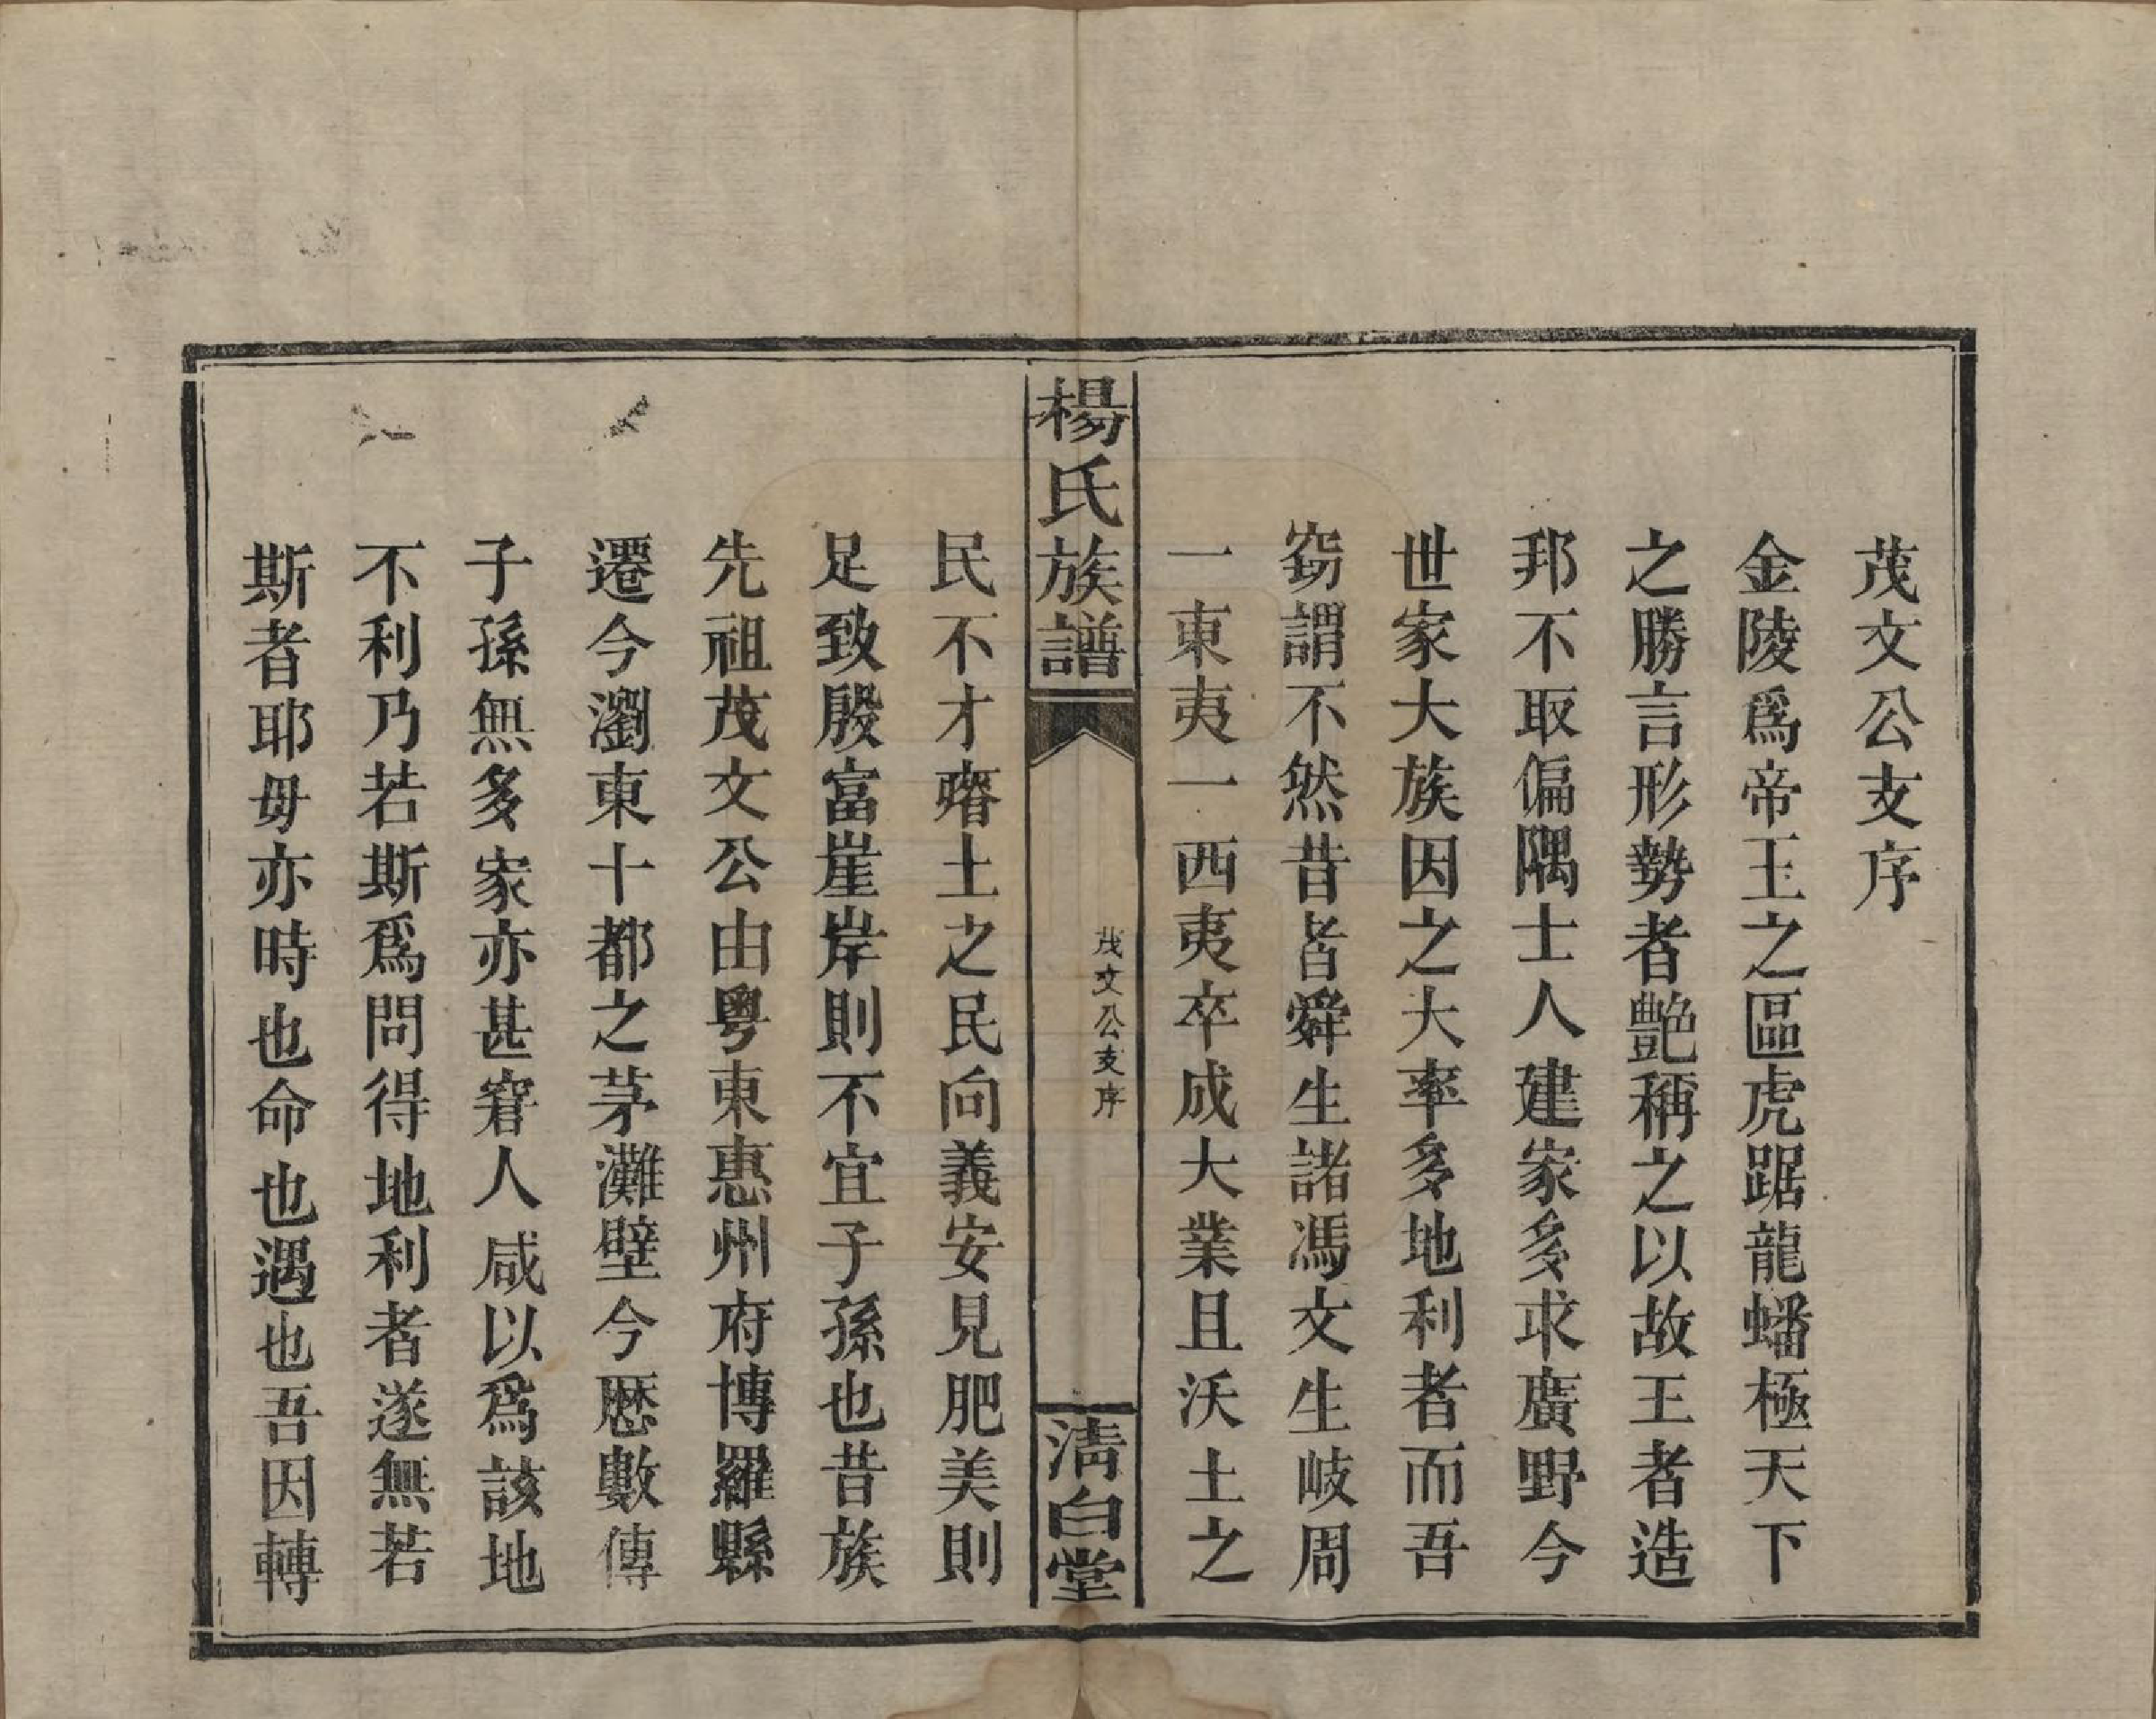 茂文公支序
金陵爲帝王之區虎踞龍蟠極天下
之勝言形勢者艷稱之以故王者造
邦不取偏隅士人建家多求廣野今
世家大族因之大率多地利者而吾
窃謂不然昔者舜生諸馮文生岐周
一東夷一西夷卒成大業且沃土之
楊氏族譜
茂文公支序
清白堂
民不才瘠土之民向義安見肥美則
足致殷富崖岸則不宜子孫也昔族
先祖茂文公由粵東惠州府博羅縣
遷今瀏東十都之茅灘壁今歷數傳
子孫無多家亦甚窘人咸以爲該地
不利乃若斯爲問得地利者遂無若
斯者耶毋亦時也命也遇也吾因轉